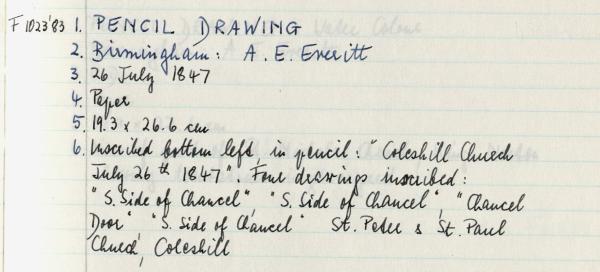 F1023'83 1. PENCIL DRAWING
2. Birmingham: A. E. Everitt
3. 26 July 1847
4. Paper
5. 19.3 x 26.6 cm
6. Inscribed bottom left, in pencil: "Coleshill Church
July 26th 1847". Four drawings inscribed:
"S. Side of Chancel" "S. Side of Chancel", "Chancel
Door", "S. Side of Chancel" St. Peter & St. Paul
Church, Coleshill